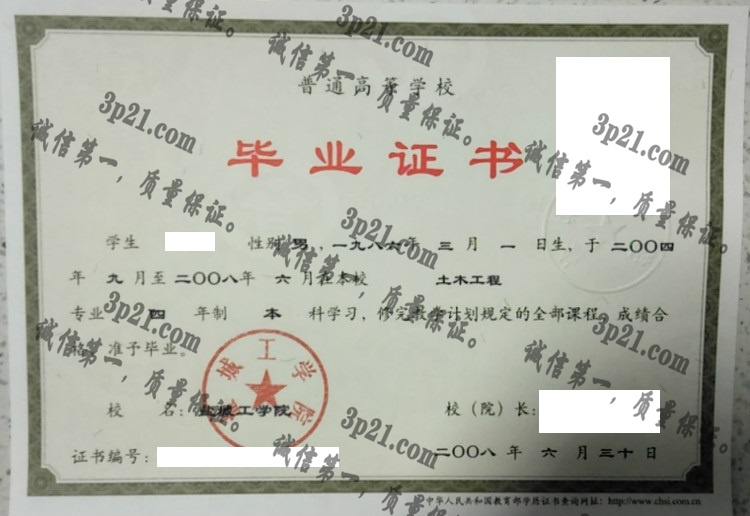 普通高等学校
毕业证书
学生 性别 男，一九八六年 三 月 一 日生，于 二〇〇四
年 九 月至 二〇〇八年 六 月在本校 土木工程
专业 四 年制 本 科学习，修完教学计划规定的全部课程，成绩合
格，准予毕业。
盐城工学院
校 名：盐城工学院 校（院）长：
证书编号： 二〇〇八 年 六 月 三十 日
中华人民共和国教育部学历证书查询网址：http://www.chsi.com.cn
3p21.com
诚信第一，质量保证。
3p21.com
诚信第一，质量保证。
3p21.com
诚信第一，质量保证。
3p21.com
诚信第一，质量保证。
3p21.com
诚信第一，质量保证。
3p21.com
诚信第一，质量保证。
3p21.com
诚信第一，质量保证。
3p21.com
诚信第一，质量保证。